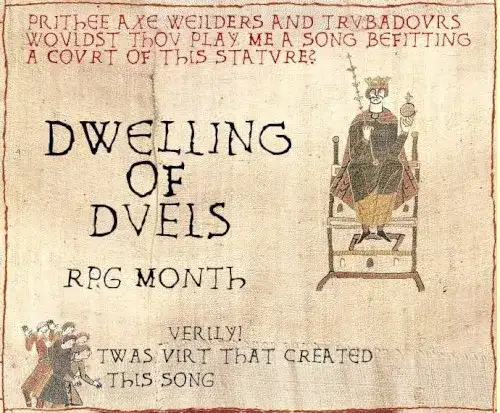 PRITHEE AXE WEILDERS AND TRVBADOVRS
WOVLDST THOV PLAY ME A SONG BEFITTING
A COVRT OF THIS STATVRE?
DWELLING
OF
DVELS
RPG MONTH
VERILY!
TWAS VIRT THAT CREATED
THIS SONG